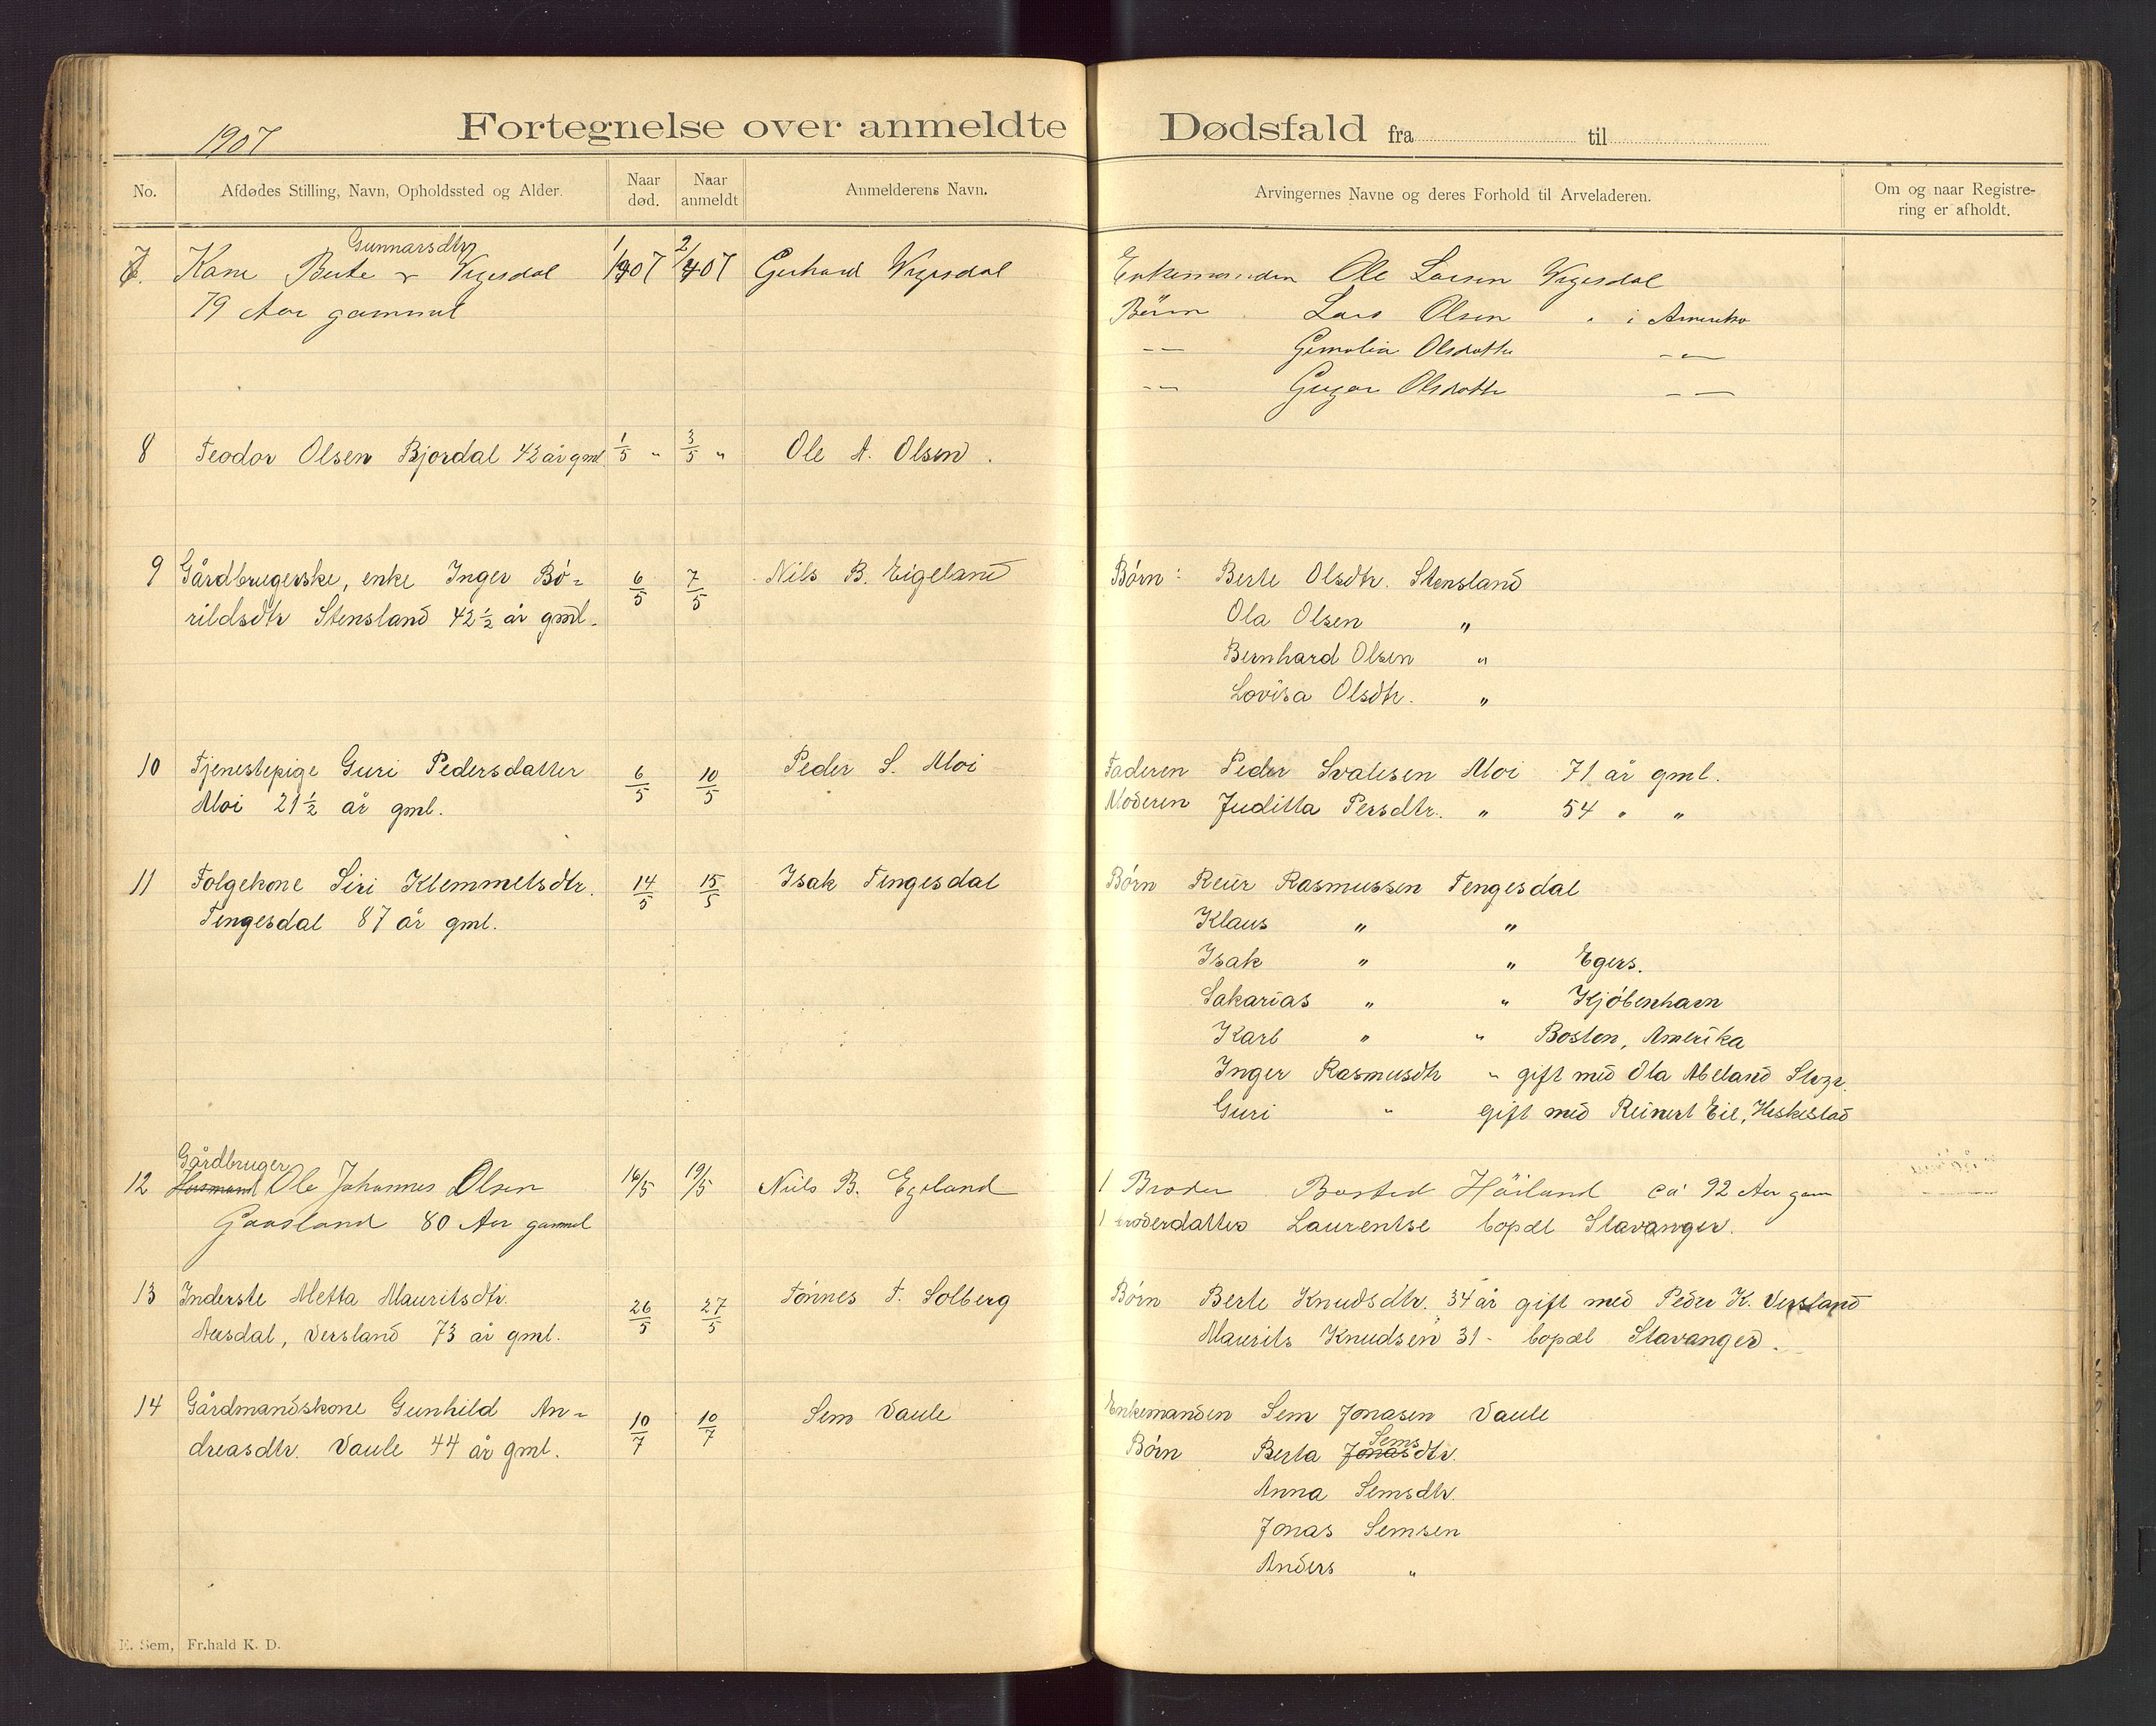 1907 Fortegnelse over anmeldte Dødsfald fra til
No. Afdødes Stilling, Navn, Opholdssted og Alder. Naar død. Naar anmeldt Anmelderens Navn. Arvingernes Navne og deres Forhold til Arveladeren. Om og naar Registrering er afholdt.
Gunnarsdtr
7. Kone Berte Vigesdal 1/4 07 2/4 07 Gerhard Vigesdal Enkemanden Ole Larsen Vigesdal
79 Aar gammel Børn Lars Olsen i Amerika
—— Olsdatter ——
—— Olsdatter ——
8 Teodor Olsen Bjordal 42 år gml. 1/5 " 3/5 " Ole A. Olsen.
9 Gårdbrugerske, enke Inger Bø- 6/5 7/5 Nils B. Eigeland Børn: Berte Olsdtr. Stensland
rildsdtr Stensland 42 ½ år gml. Ola Olsen "
Bernhard Olsen "
Lovisa Olsdtr. "
10 Tjenestepige Guri Pedersdatter 6/5 10/5 Peder S. Moi Faderen Peder Svalesen Moi 71 år gml.
Moi 21 ½ år gml. Moderen Juditta Persdtr. " 54 " "
11 Folgekone Siri Klemmetsdtr. 14/5 15/5 Isak Tengesdal Børn Reier Rasmussen Tengesdal
Tengesdal 87 år gml. Klaus " "
Isak " " Egers.
Sakarias " " Kjøbenhavn
Karl " " Boston, Amerika
Inger Rasmusdtr " gift med Ola Abeland
Guri " gift med Reinert Eie, Heskestad
Gårdbruger
12 Husmand Ole Johannes Olsen 16/5 19/5 Niils B. Egeland 1 Broder Bosted Höiland ca 92 Aar gam
Gaasland 80 Aar gammel 1 broderdatter Laurentse bopæl Stavanger.
13 Inderste Metta Mauritsdtr. 26/5 27/5 Tønnes T. Solberg Børn Berte Knudsdtr. 34 år gift med Peder K. Versland
Aarsdal, Versland 73 år gml. Maurits Knudsen 31 - bopæl Stavanger.
14 Gårdmandskone Gunhild An- 10/7 10/7 Sem Vaule Enkemanden Sem Jonasen Vaule
Sems
dreasdtr. Vaule 44 år gml. Børn Berta Jonasdtr.
Anna Semsdtr.
Jonas Semsen
Anders "
E. Sem, Fr.hald K. D.